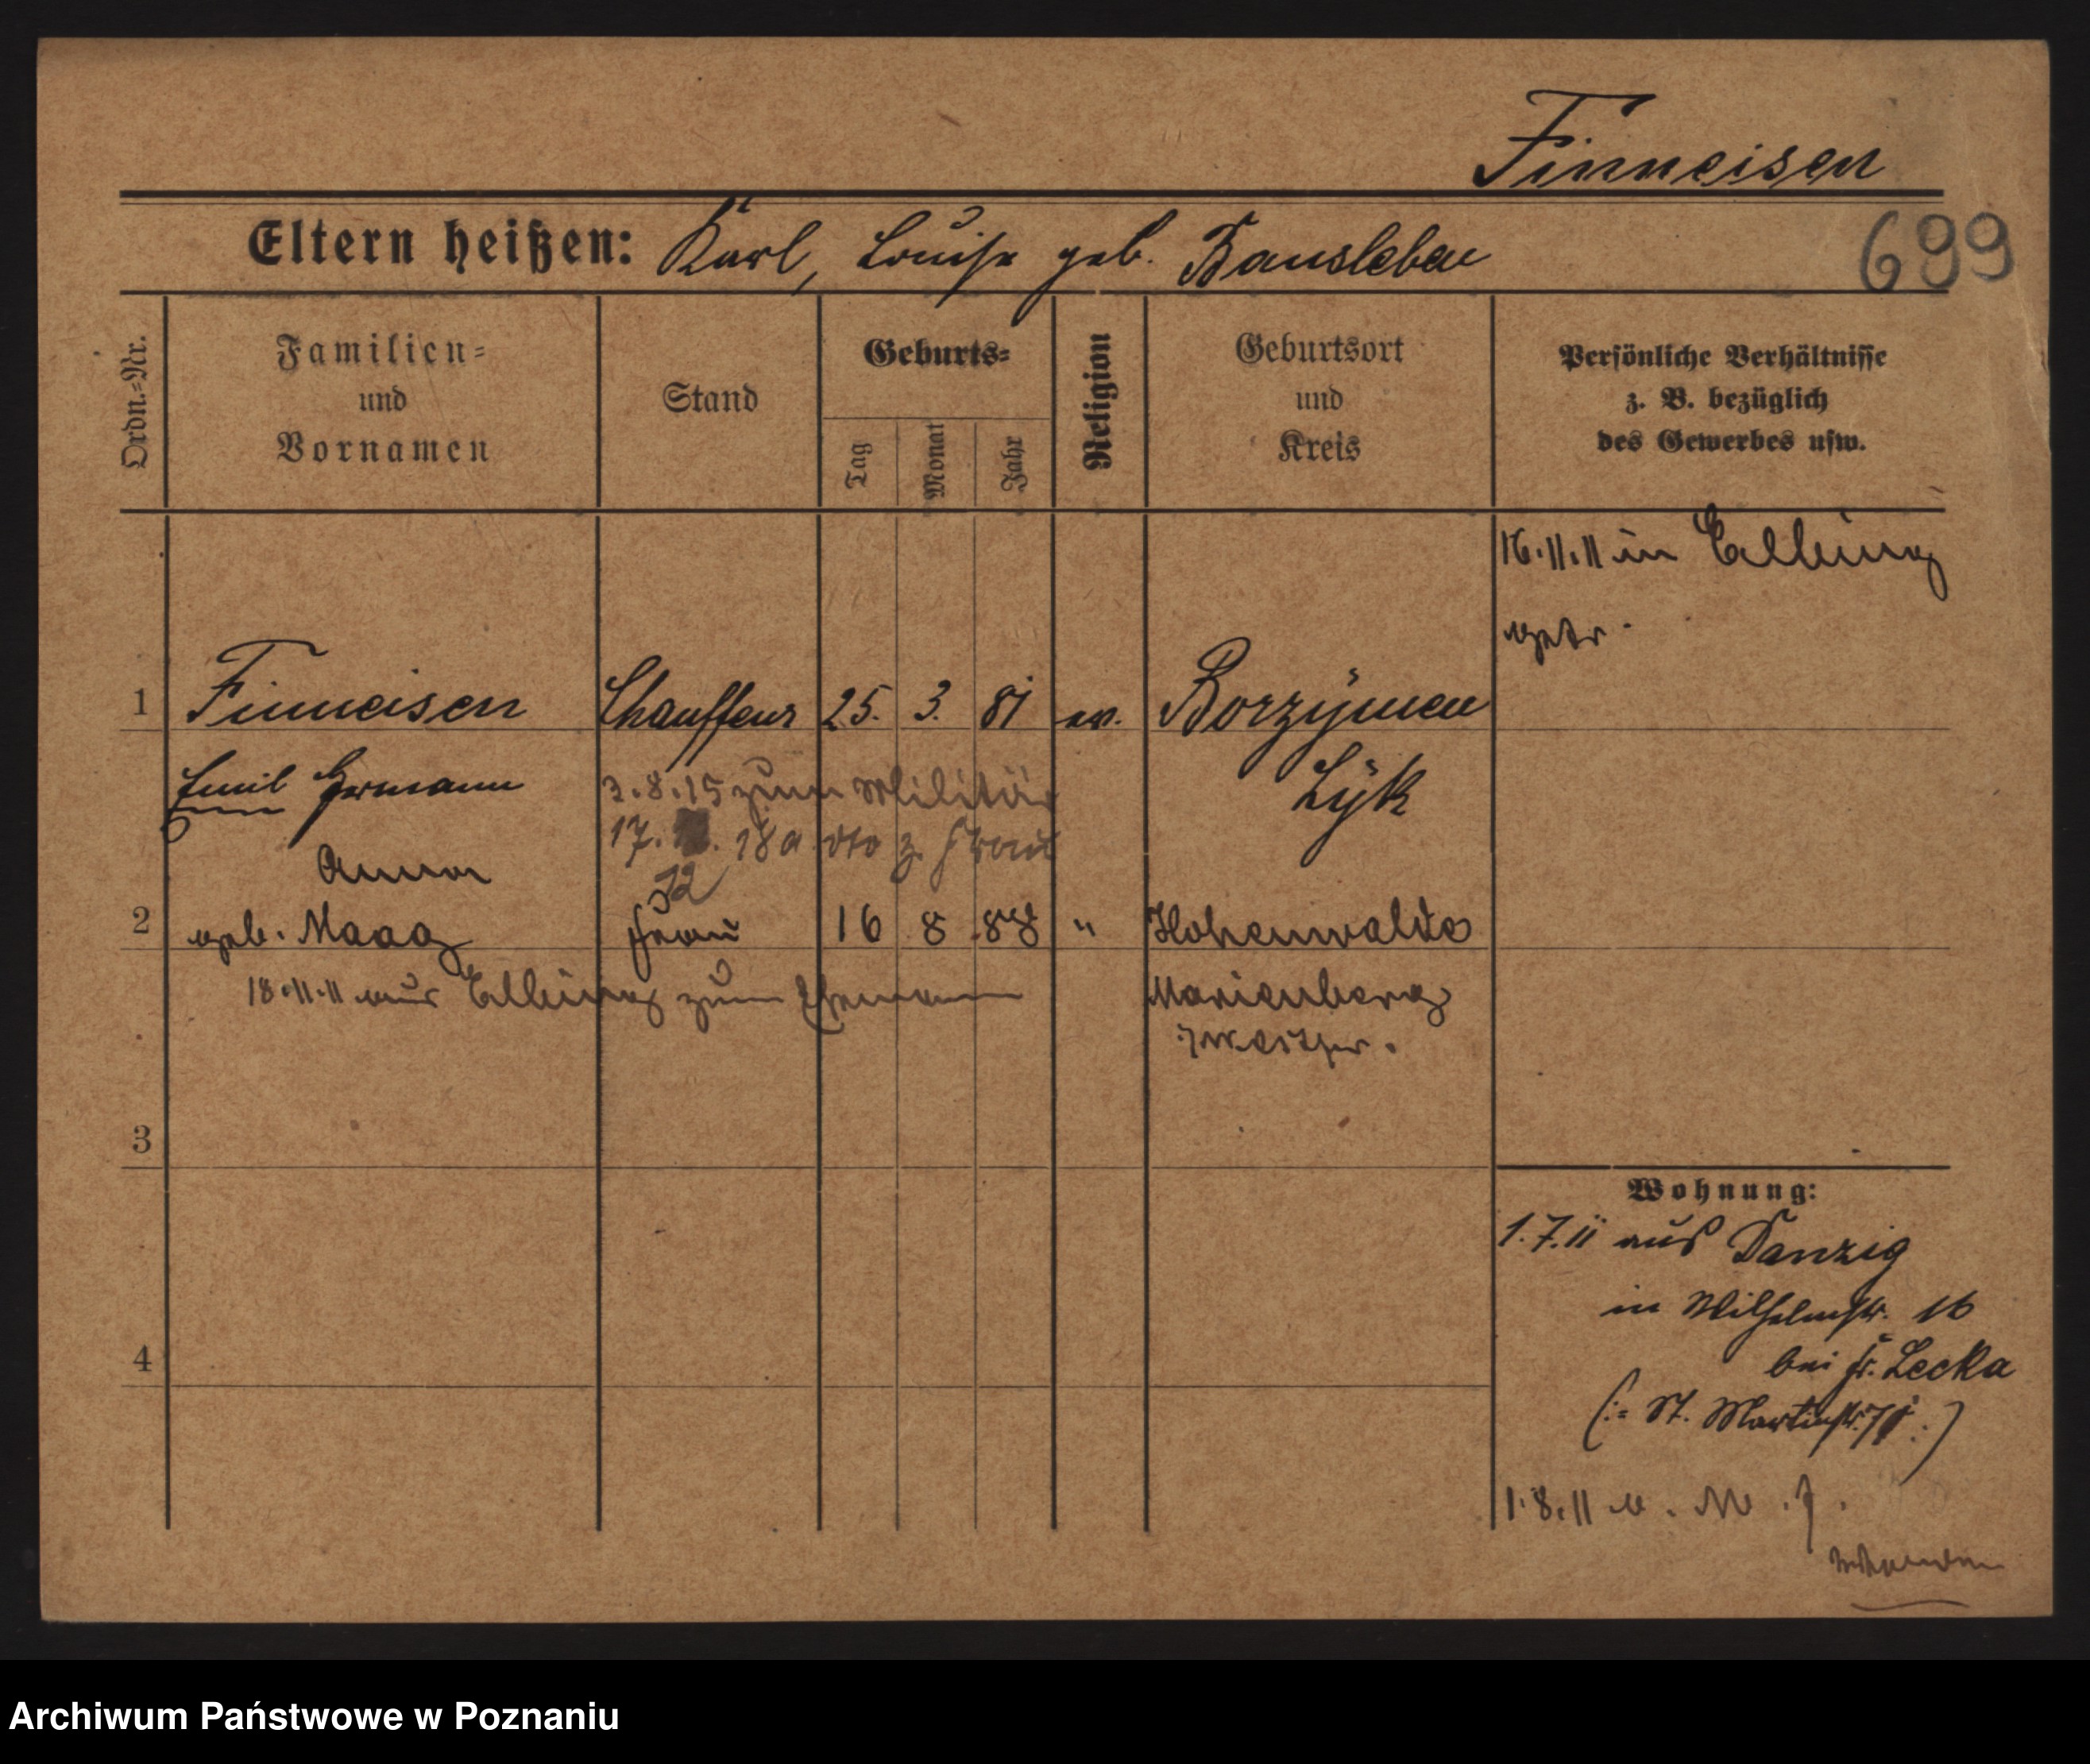 Finneisen
Eltern heißen: Karl, Louise geb. Bansleben
699
Ordn.=Nr.
Familien=
und
Vornamen
Stand
Geburts=
Tag
Monat
Jahr
Religion
Geburtsort
und
Kreis
Persönliche Verhältnisse
z. B. bezüglich
des Gewerbes usw.
16.11.11 in Elbing
getr.
1 Finneisen Chauffeur 25. 3. 81 ev. Borzymen
Emil Hermann Lyk
3.8.15 zum Militär
17. 18 a dto z. Frau
12
Anna
2 geb. Maag Frau 16 8 88 " Hohenwalde
18.11.11 aus Elbing zum Ehemann Marienberg
Westpr.
3
4
Wohnung:
1.7.11 aus Danzig
in Wilhelmstr. 16
bei Fr. Lecka
(:= St. Martinstr. :)
1.8.11
Archiwum Państwowe w Poznaniu